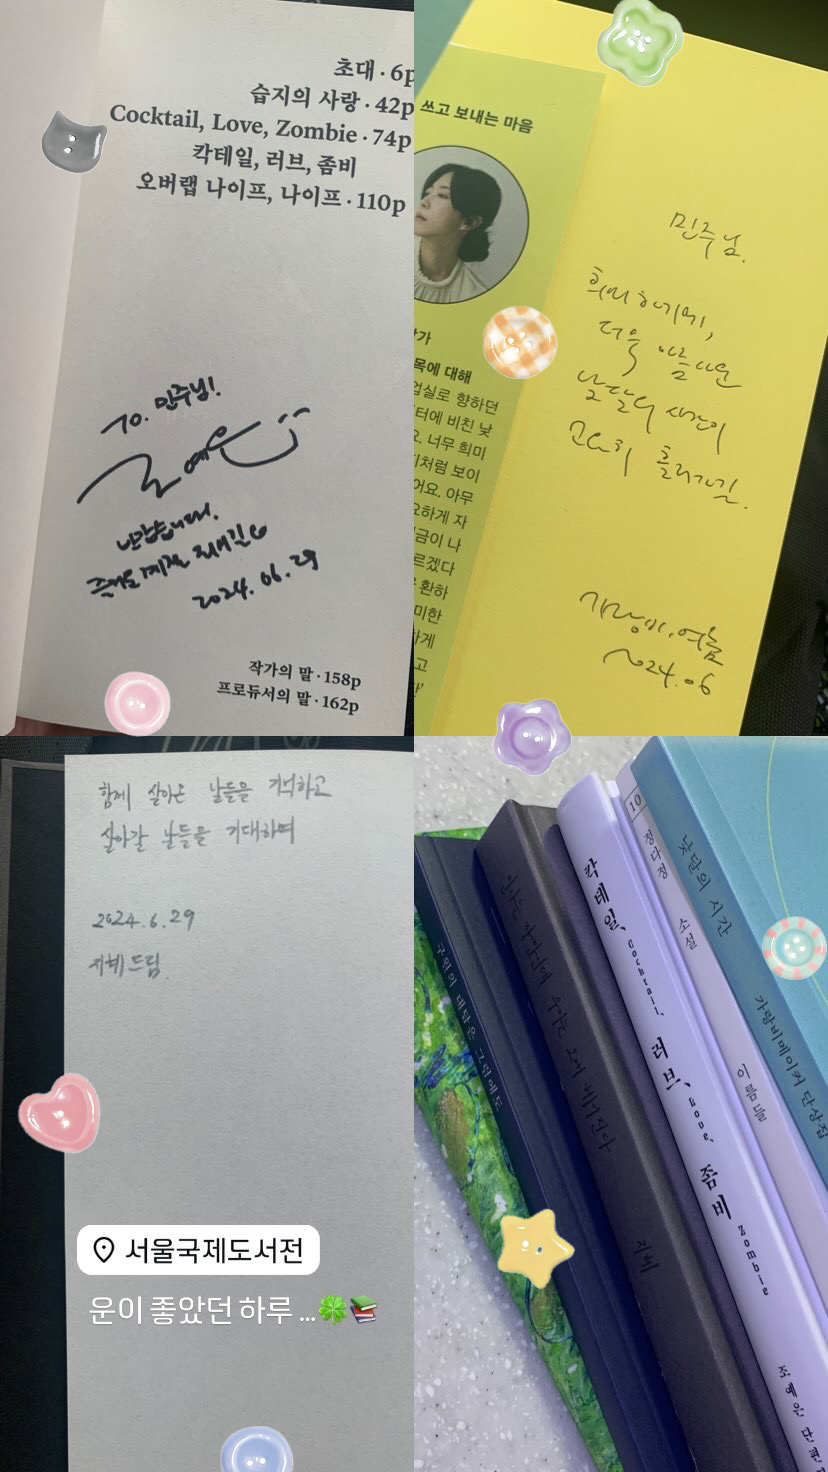 초대 · 6p
습지의 사랑 · 42p
Cocktail, Love, Zombie · 74p
칵테일, 러브, 좀비
오버랩 나이프, 나이프 · 110p
TO. 민주님!
반갑습니다.
2024. 06. 29
작가의 말 · 158p
프로듀서의 말 · 162p
쓰고 보내는 마음
목에 대해
업실로 향하던
터에 비친 낯
너무 희미
처럼 보이
어요. 아무
요하게 자
금이 나
르겠다
환하
미한
하게
고
민주님.
더욱 아름다운
낱달의 시간이
고요히 흘러가길.
가랑비, 여름
2024. 06
함께 살아온 날들을 기억하고
살아갈 날들을 기대하며
2024. 6. 29
지혜 드림.
서울국제도서전
운이 좋았던 하루 ...🍀📚
구원의 대답은 그럼에도
지혜
칵테일, 러브, 좀비
Cocktail, Love, Zombie
조예은 단편
10
정다정
소설
이름들
낯달의 시간
가랑비메이커 단상집